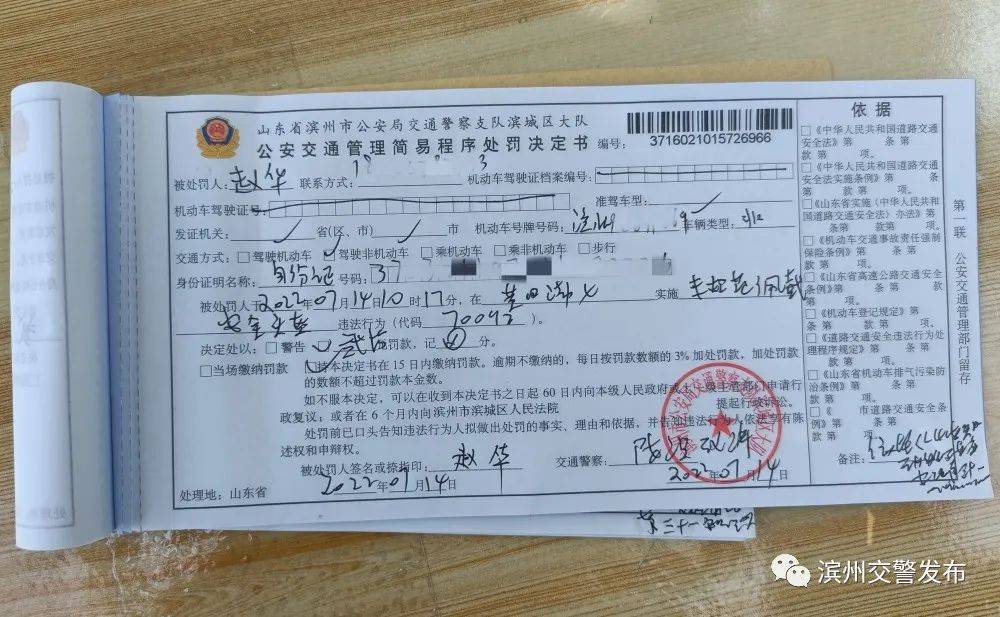 山东省滨州市公安局交通警察支队滨城区大队
公安交通管理简易程序处罚决定书 编号:
3716021015726966
被处罚人:赵华 联系方式: 机动车驾驶证档案编号:
机动车驾驶证号: 准驾车型:
发证机关: 省(区、市) 市 机动车号牌号码: 车辆类型:
交通方式:□驾驶机动车 □驾驶非机动车 □乘机动车 □乘非机动车 □步行
身份证明名称:身份证 号码:37
被处罚人于2022年07月14日10时17分,在 实施 佩戴
安全头盔 违法行为(代码 )。
决定处以:□警告 □ 罚款,记 分。
□当场缴纳罚款 □持本决定书在15日内缴纳罚款。逾期不缴纳的,每日按罚款数额的3%加处罚款,加处罚款
的数额不超过罚款本金数。
如不服本决定,可以在收到本决定书之日起60日内向本级人民政府或上一级主管部门申请行
政复议;或者在6个月内向滨州市滨城区人民法院 提起行政诉讼。
处罚前已口头告知违法行为人拟做出处罚的事实、理由和依据,并告知违法行为人依法享有陈
述权和申辩权。
被处罚人签名或捺指印:赵华 交通警察:
处理地:山东省 2022年07月14日 2022年07月14日
依据
□《中华人民共和国道路交通
安全法》第 条 第
款 第 项。
□《中华人民共和国道路交通
安全法实施条例》第 条
第 款 第 项。
□《山东省实施〈中华人民共和
国道路交通安全法〉办法》第
条 第 款 第 项。
□《机动车交通事故责任强制
保险条例》第 条 第 款
□《山东省高速公路交通安全
条例》第 条 第 款
第 项。
□《机动车登记规定》第
条 第 款 第 项。
□《道路交通安全违法行为处
理程序规定》第 条 第
款 第 项。
□《山东省机动车排气污染防
治条例》第 条 第 款
第 项。
□《 市道路交通安全
条例》第 条 第 款
第 项。
备注:
第一联 公安交通管理部门留存
滨州交警发布